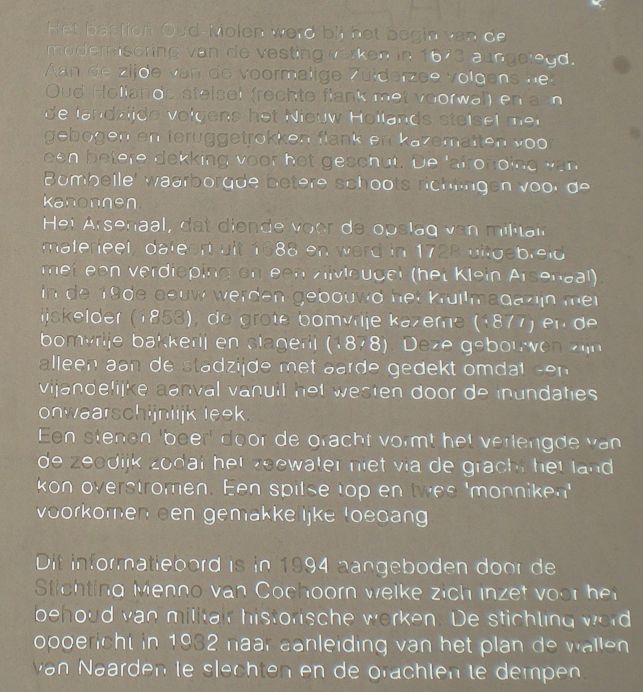 Het bastion Oud Molen werd bij het begin van de
modernisering van de vestingwerken in 1673 aangelegd.
Aan de zijde van de voormalige Zuiderzee volgens het
Oud Hollands stelsel (rechte flank met voorwal) en aan
de landzijde volgens het Nieuw Hollands stelsel met
gebogen en teruggetrokken flank en kazematten voor
een betere dekking voor het geschut. De 'afronding van
Bombelle' waarborgde betere schootsrichtingen voor de
kanonnen.
Het Arsenaal, dat diende voor de opslag van militair
materieel, dateert uit 1688 en werd in 1728 uitgebreid
met een verdieping en een zijvleugel (het Klein Arsenaal).
In de 19de eeuw werden gebouwd het Kruitmagazijn met
ijskelder (1853), de grote bomvrije kazerne (1877) en de
bomvrije bakkerij en slagerij (1878). Deze gebouwen zijn
alleen aan de stadzijde met aarde gedekt omdat een
vijandelijke aanval vanuit het westen door de inundaties
onwaarschijnlijk leek.
Een stenen 'beer' door de gracht vormt het verlengde van
de zeedijk zodat het zeewater niet via de gracht het land
kon overstromen. Een spitse top en twee 'monniken'
voorkomen een gemakkelijke toegang

Dit informatiebord is in 1994 aangeboden door de
Stichting Menno van Coehoorn welke zich inzet voor het
behoud van militair historische werken. De stichting werd
opgericht in 1932 naar aanleiding van het plan de wallen
van Naarden te slechten en de grachten te dempen.